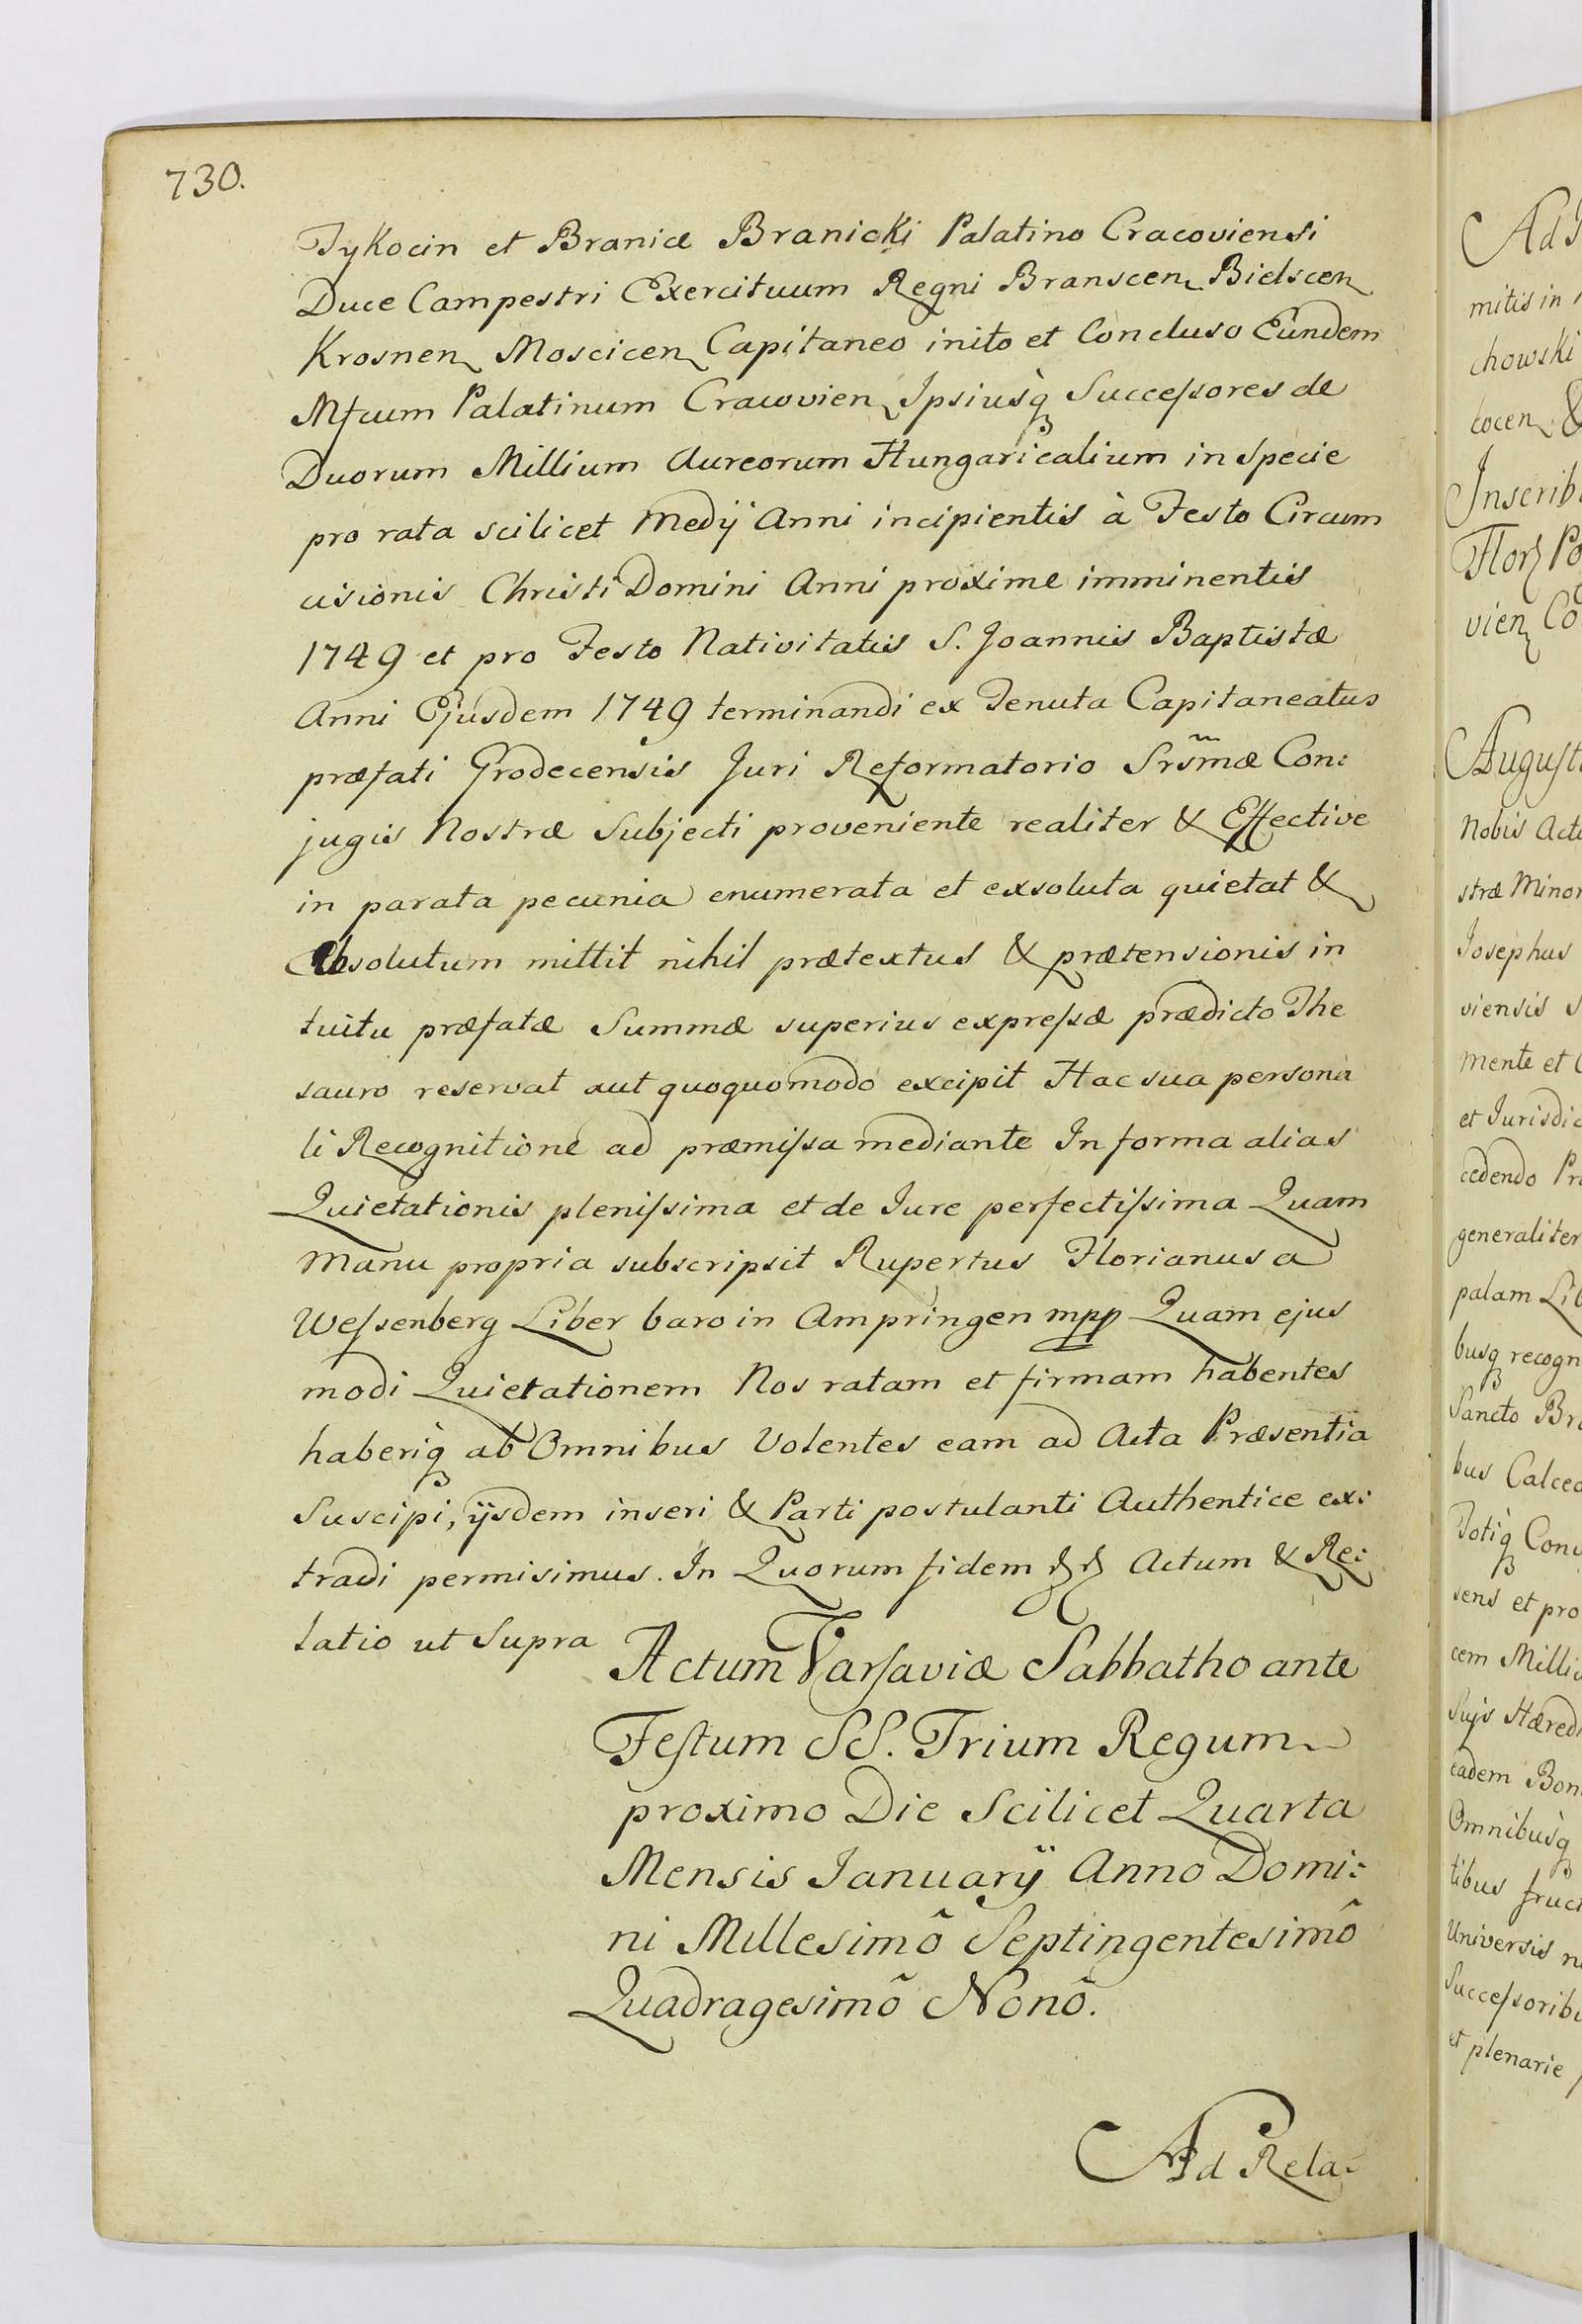 730.
Tykocin et Branice Branicki Palatino Cracoviensi
Duce Campestri Exercituum Regni Branscen Bielscen
Krosnen Moscicen Capitaneo inito et Concluso Eundem
Mfcum Palatinum Cracovien Ipsiusq Succeſsores de
Duorum Millium Aureorum Hungaricalium in Specie
pro rata scilicet Medÿ Anni incipientis à Festo Circum
cisionis Christi Domini Anni proxime imminentis
1749 et pro Festo Nativitatis S. Joannis Baptistæ
Anni Ejusdem 1749 terminandi ex Tenuta Capitaneatus
præfati Grodecensis Juri Reformatorio Srsmæ Con:
jugis Nostræ Subjecti proveniente realiter & Effective
in parata pecunia enumerata et exsoluta quietat &
Absolutum mittit nihil prætextus & prætensionis in
tuitu præfatæ Summæ superius expreſsæ prædicto The
sauro reservat aut quoquomodo excipit Hac sua persona
li Recognitione ad præmiſsa mediante In forma alias
Quietationis pleniſsima et de Jure perfectiſsima Quam
Manu propria subscripsit Rupertus Florianus a
Weſsenberg Liber baro in Ampringen mpp Quam ejus
modi Quietationem Nos ratam et firmam habentes
haberiq ab Omnibus Volentes eam ad Acta Præsentia
Suscipi, ÿsdem inseri & Parti postulanti Authentice ex:
tradi permisimus. In Quorum fidem Actum & Re:
latio ut Supra
Actum Varſaviæ Sabbatho ante
Feſtum SS. Trium Regum
proximo Die Scilicet Quarta
Mensis Januarÿ Anno Domi:
ni Millesimô Septingentesimô
Quadragesimô Nonô.
Ad Rela:
mitis in
chowski
cocen &
Inscrib
Flor Po
vien Co
Auguſt
Nobis Act
stræ Minor
Josephus
viensis S
Mente et
et Jurisdic
cedendo Pr
generaliter
palam Lib
busq recogn
Sancto Br
bus Calced
Totiq Conv
sens et pro
cem Milli
Suÿs Hæred
eadem Bon
Omnibusq
tibus fruct
Universis n
Succeſsorib
et plenarie